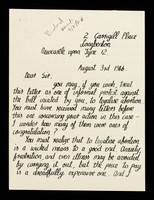 2 Carrgill Place
Longbenton
Newcastle upon Tyne 12.
August 3rd 1966
Dear Sir,
you may, if you wish, treat
this letter as one of informal protest against
the bill visited by you, to legalise abortion.
You must have received many letters before
this one upbraiding your actions in this case -
I wonder how many of them were ones of
congratulation?
You must realise that to legalise abortion
is a wicked means to a good end. Poverty,
and even illness may be avoided
by carrying it out, but the price to pay
is a dreadfully expensive one. And I